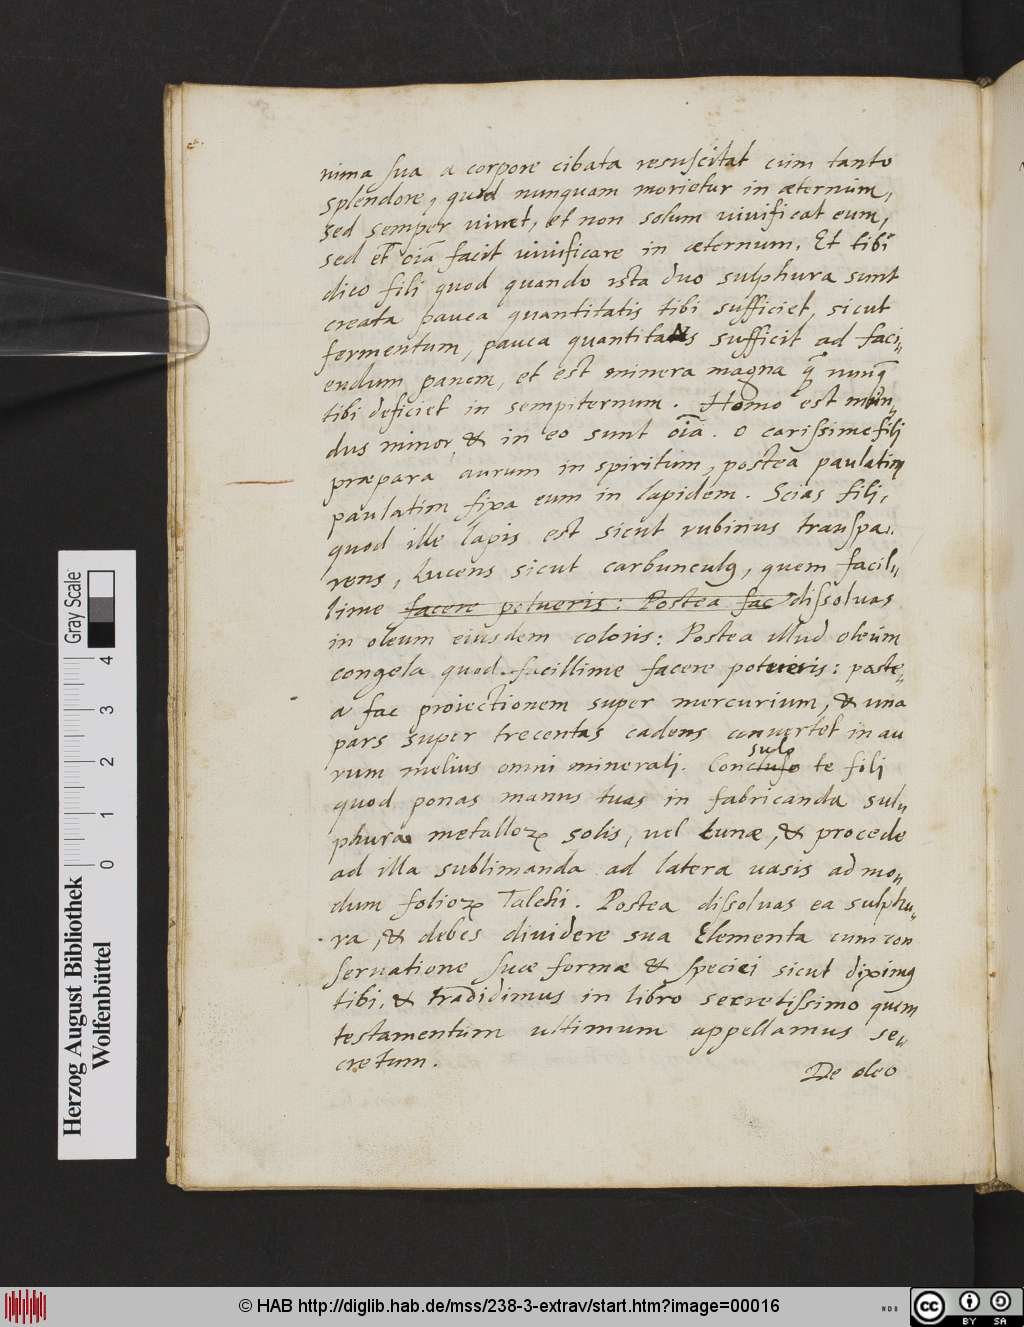 nima sua a corpore cibata resuscitat cum tanto
splendore, quod nunquam morietur in æternum,
sed semper vivet, et non solum vivificat eum,
sed et̄ oīa facit vivificare in æternum. Et tibi
dico fili quod quando ista duo sulphura sunt
creata pauca quantitatis tibi sufficiet, sicut
fermentum, pauca quantitatis sufficit ad faci„
endum panem, et est minera magna q̄ nunq̄
tibi deficiet in sempiternum. Homo est mun„
dus minor & in eo sunt oīa. o carissime fili
præpara aurum in spiritum, postea paulatim
paulatim fixa eum in lapidem. Scias fili,
quod ille lapis est sicut rubinus transpa„
rens, lucens sicut carbunculꝰ, quem facil„
lime facere potueris: Postea fac dissolvas
in oleum eiusdem coloris: Postea illud oleum
congela quod facillime facere potueris: poste„
a fac proiectionem super mercurium, & una
pars super trecentas cadens convertet in au
rum melius omni minerali. Concluso sulo te fili
quod ponas manus tuas in fabricanda sul„
phura metalloꝝ solis, vel Lunæ, & procede
ad illa sublimanda ad latera vasis ad mo„
dum folioꝝ Talchi. Postea dissolvas ea sulphu„
ra, & debes dividere sua Elementa cum con
servatione suæ formæ & speciei sicut diximꝰ
tibi, & tradidimus in libro secretissimo quem
testamentum ultimum appellamus se„
cretum.
De oleo
Herzog August Bibliothek
Wolfenbüttel
Gray Scale
0 1 2 3 4
© HAB http://diglib.hab.de/mss/238-3-extrav/start.htm?image=00016
cc BY SA